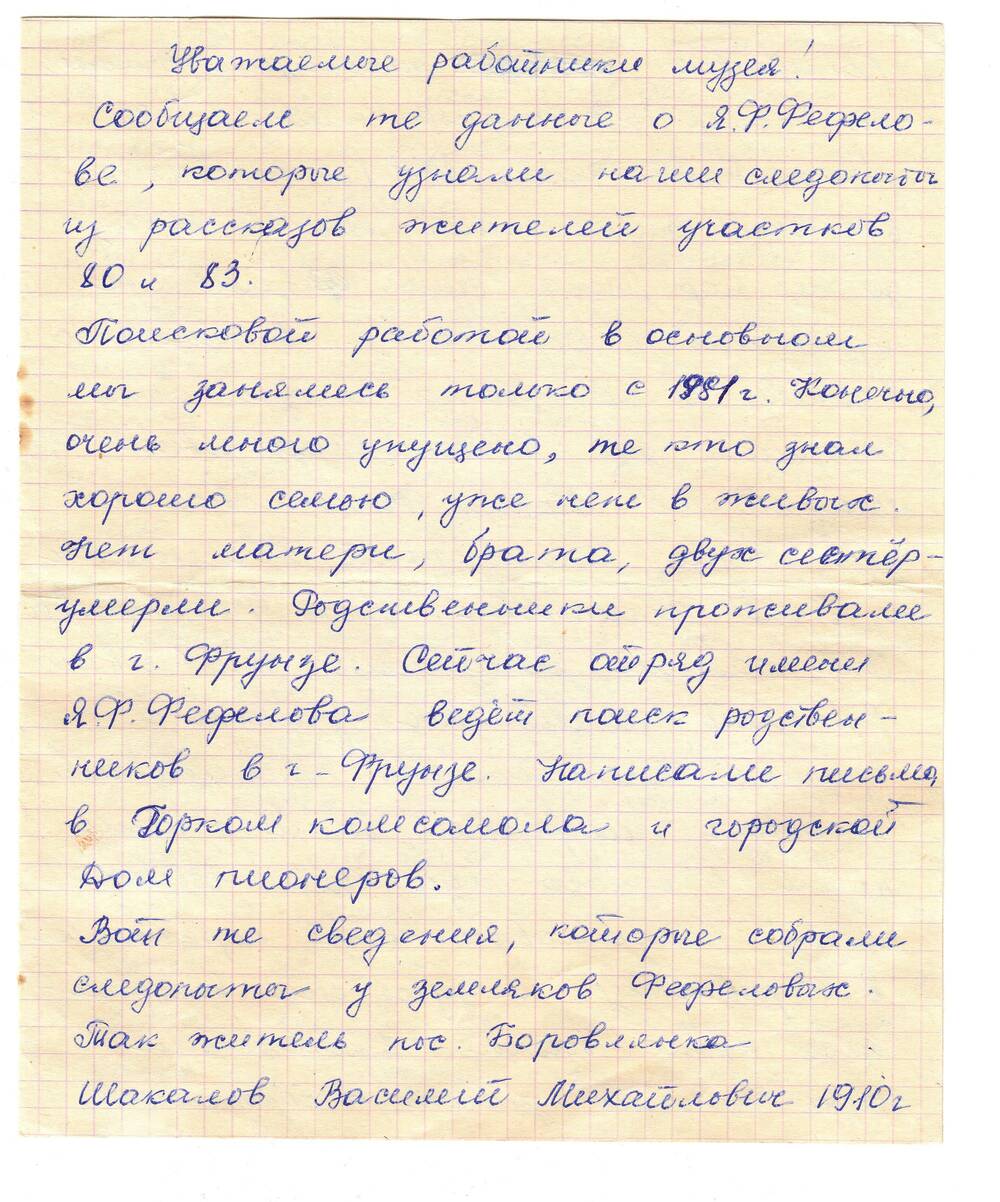 Уважаемые работники музея!
Сообщаем те данные о Я.Ф.Фефело-
ве, которые узнали наши следопыты
из рассказов жителей участков
80 и 83.
Поисковой работой в основном
мы занялись только с 1981 г. Конечно,
очень много упущено, те кто знал
хорошо семью, уже нет в живых.
Нет матери, брата, двух сестёр-
умерли. Родственники проживали
в г. Фрунзе. Сейчас отряд имени
Я.Ф.Фефелова ведёт поиск родствен-
ников в г-Фрунзе. Написали письма,
в Горком комсомола и городской
Дом пионеров.
Вот те сведения, которые собрали
следопыты у земляков Фефеловых.
Так житель пос. Боровлянка
Шакалов Василий Михайлович 1910г